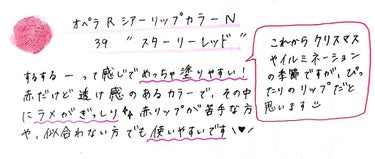 オペラ R シアーリップカラーN
39 "スターリーレッド"
するするーって感じでめっちゃ塗りやすい!
赤だけど透け感のあるカラーで、その中
にラメがぎっしり 赤リップが苦手な方
や、似合わない方でも使いやすいです♥
これからクリスマス
やイルミネーション
の季節ですが、ぴっ
たりのリップだと
思います